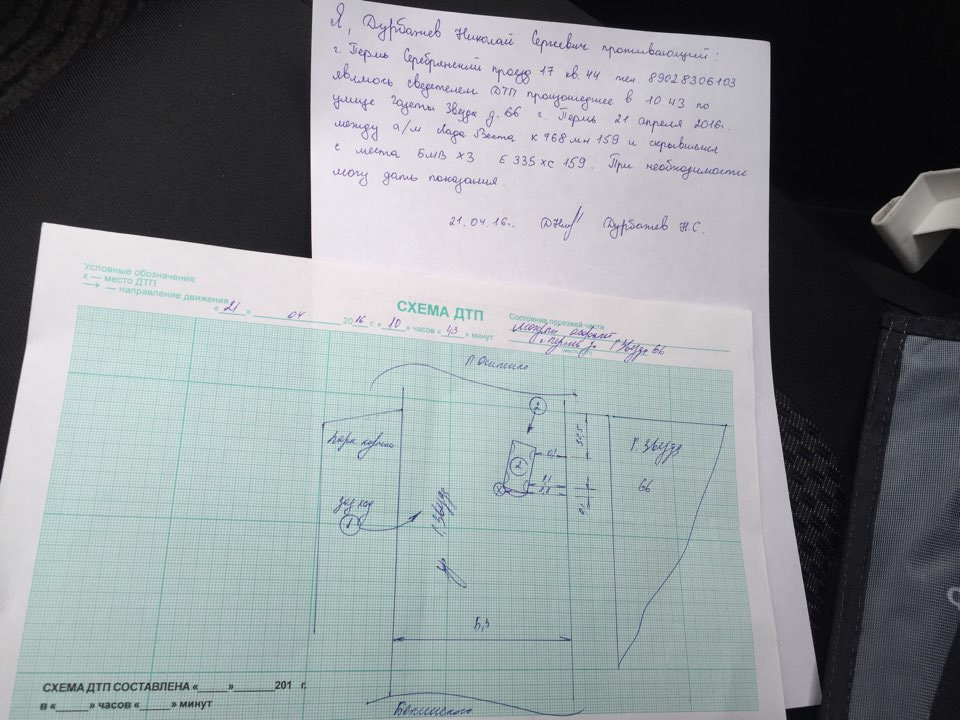 Я, Дурбажев Николай Сергеевич проживающий:
г. Пермь Серебрянский проезд 17 кв. 44 тел. 89028306103
являюсь свидетелем ДТП произошедшее в 10.43 по
улице Газеты Звезда д. 66 г. Пермь 21 апреля 2016г.
между а/м Лада Веста к 968 мн 159 и скрывшимся
с места БМВ Х3 Е 335 ХС 159. При необходимости
могу дать показания
21.04.16г. Дурбажев Н.С.
Условные обозначения:
х — место ДТП
→ — направление движения
СХЕМА ДТП
«21» 04 2016 г. «10» часов «43» минут
Состояние проезжей части
мокрый асфальт
г. Пермь ул. Г. Звезда 66
Парк карман
зад ход
1
ул. Г. Звезда
2
2
Г. Звезда
66
СХЕМА ДТП СОСТАВЛЕНА «____»________201 г.
в «____» часов «____» минут